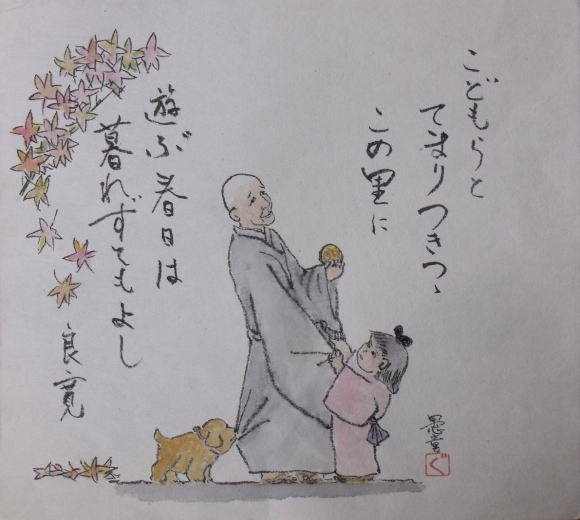 こどもらと
てまりつきつゝ
この里に
遊ぶ春日は
暮れずともよし
良寛
愚童
ぐ